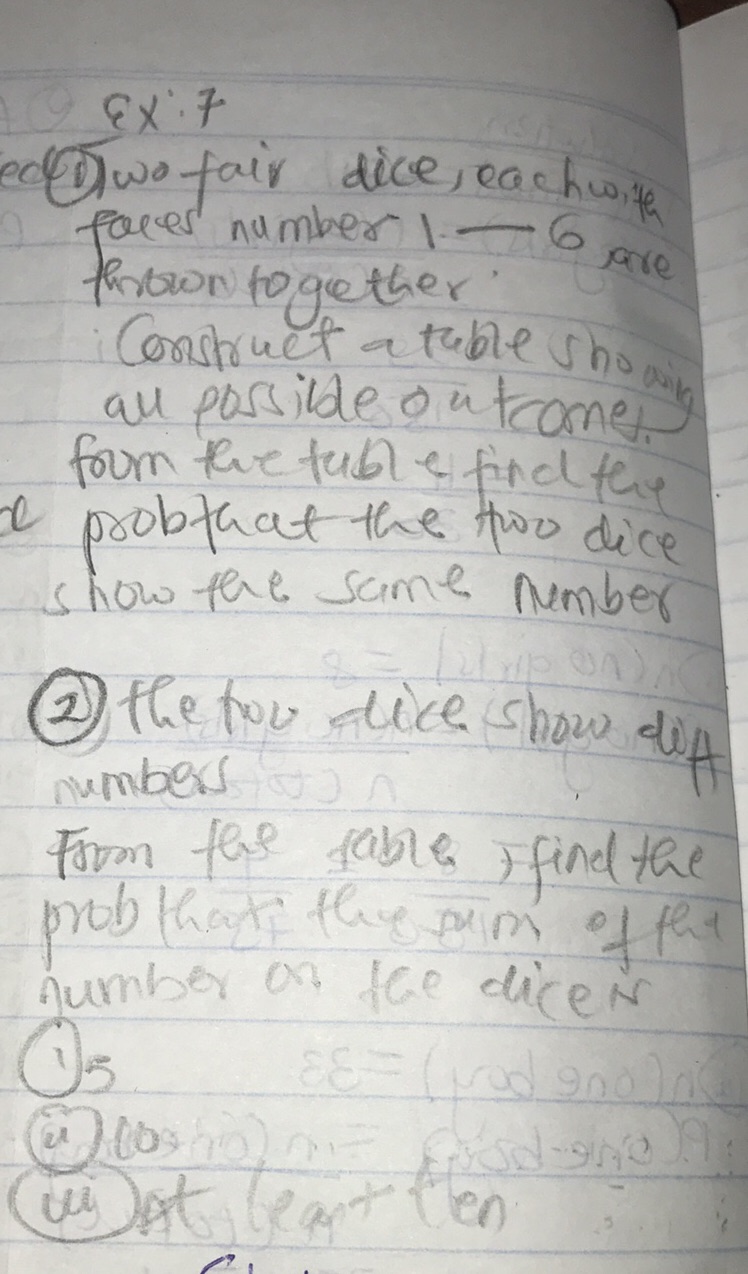 Ex: 7
① Two fair dice, each with
faces number 1 — 6 are
thrown together.
Construct a table showing
all possilde outcomes.
foom the table find the
prob that the two dice
show the same number
② the two dice show diff
numbers
From the table, find the
prob that the sum of the
number on the dice is
(i) 5
(ii) 10
(iii) at least ten